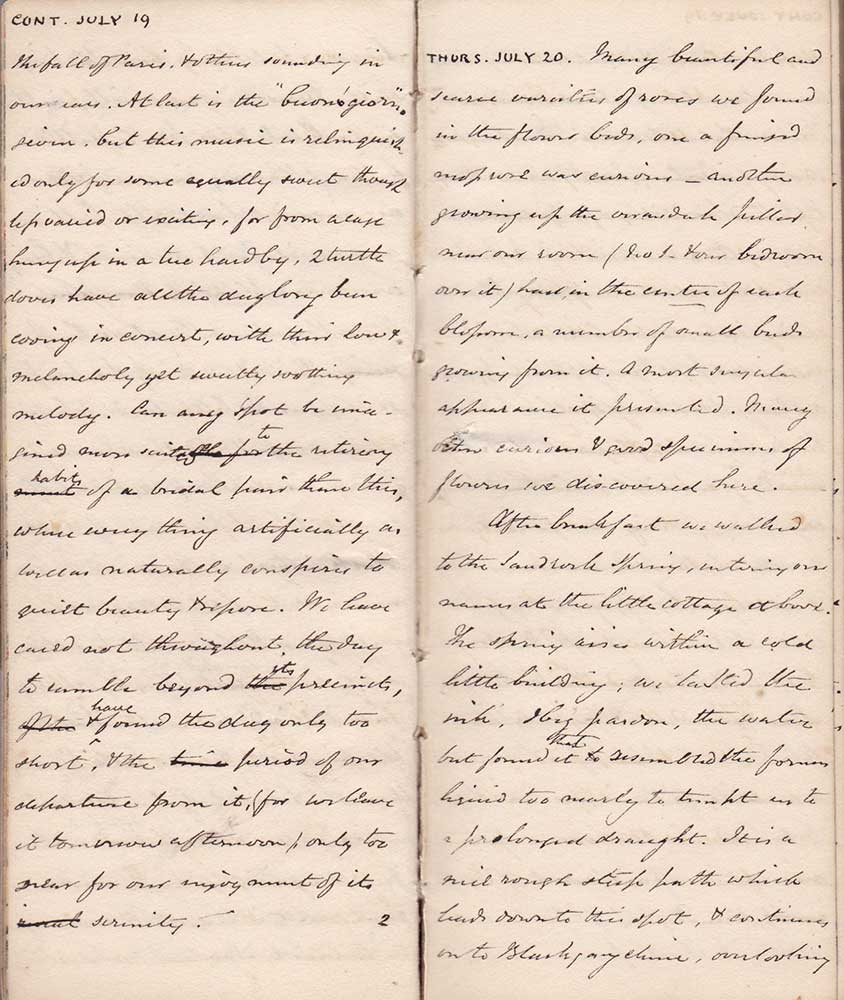 CONT. JULY 19
The fall of Paris, & others sounding in
our ears. At last is the "buono giorno"
given, but this music is relinquish-
ed only for some equally sweet though
less varied or exciting, for from a cage
hung up in a tree hard by, 2 turtle
doves have all the day long been
cooing in concert, with their low &
melancholy yet sweetly soothing
melody. Can any spot be ima-
gined more suitable for to the retiring
habits of a bridal pair than this,
where every thing artificially as
well as naturally conspires to
quiet beauty & repose. We have
cared not throughout the day
to ramble beyond the its precincts,
& have found the day only too
short, & the time period of our
departure from it, (for we leave
it tomorrow afternoon) only too
near for our enjoyment of its
serenity.
2
THURS. JULY 20. Many beautiful and
scarce varieties of roses we found
in the flower beds, one a fringed
moss rose was curious – another
growing up the verandah pillar
near our room (No 1 & our bedroom
over it) had in the centre of each
blossom, a number of small buds
growing from it. A most singular
appearance it presented. Many
other curious & good specimens of
flowers we discovered here.
After breakfast we walked
to the Sandrock Spring, entering our
names at the little cottage above.
The spring arises within a cold
little building; we tasted the
ink, I beg pardon, the water
but found it that to resembled the former
liquid too nearly to tempt us to
a prolonged draught. It is a
nice rough steep path which
leads down to this spot, & continues
on to Blackgangchine, overlooking